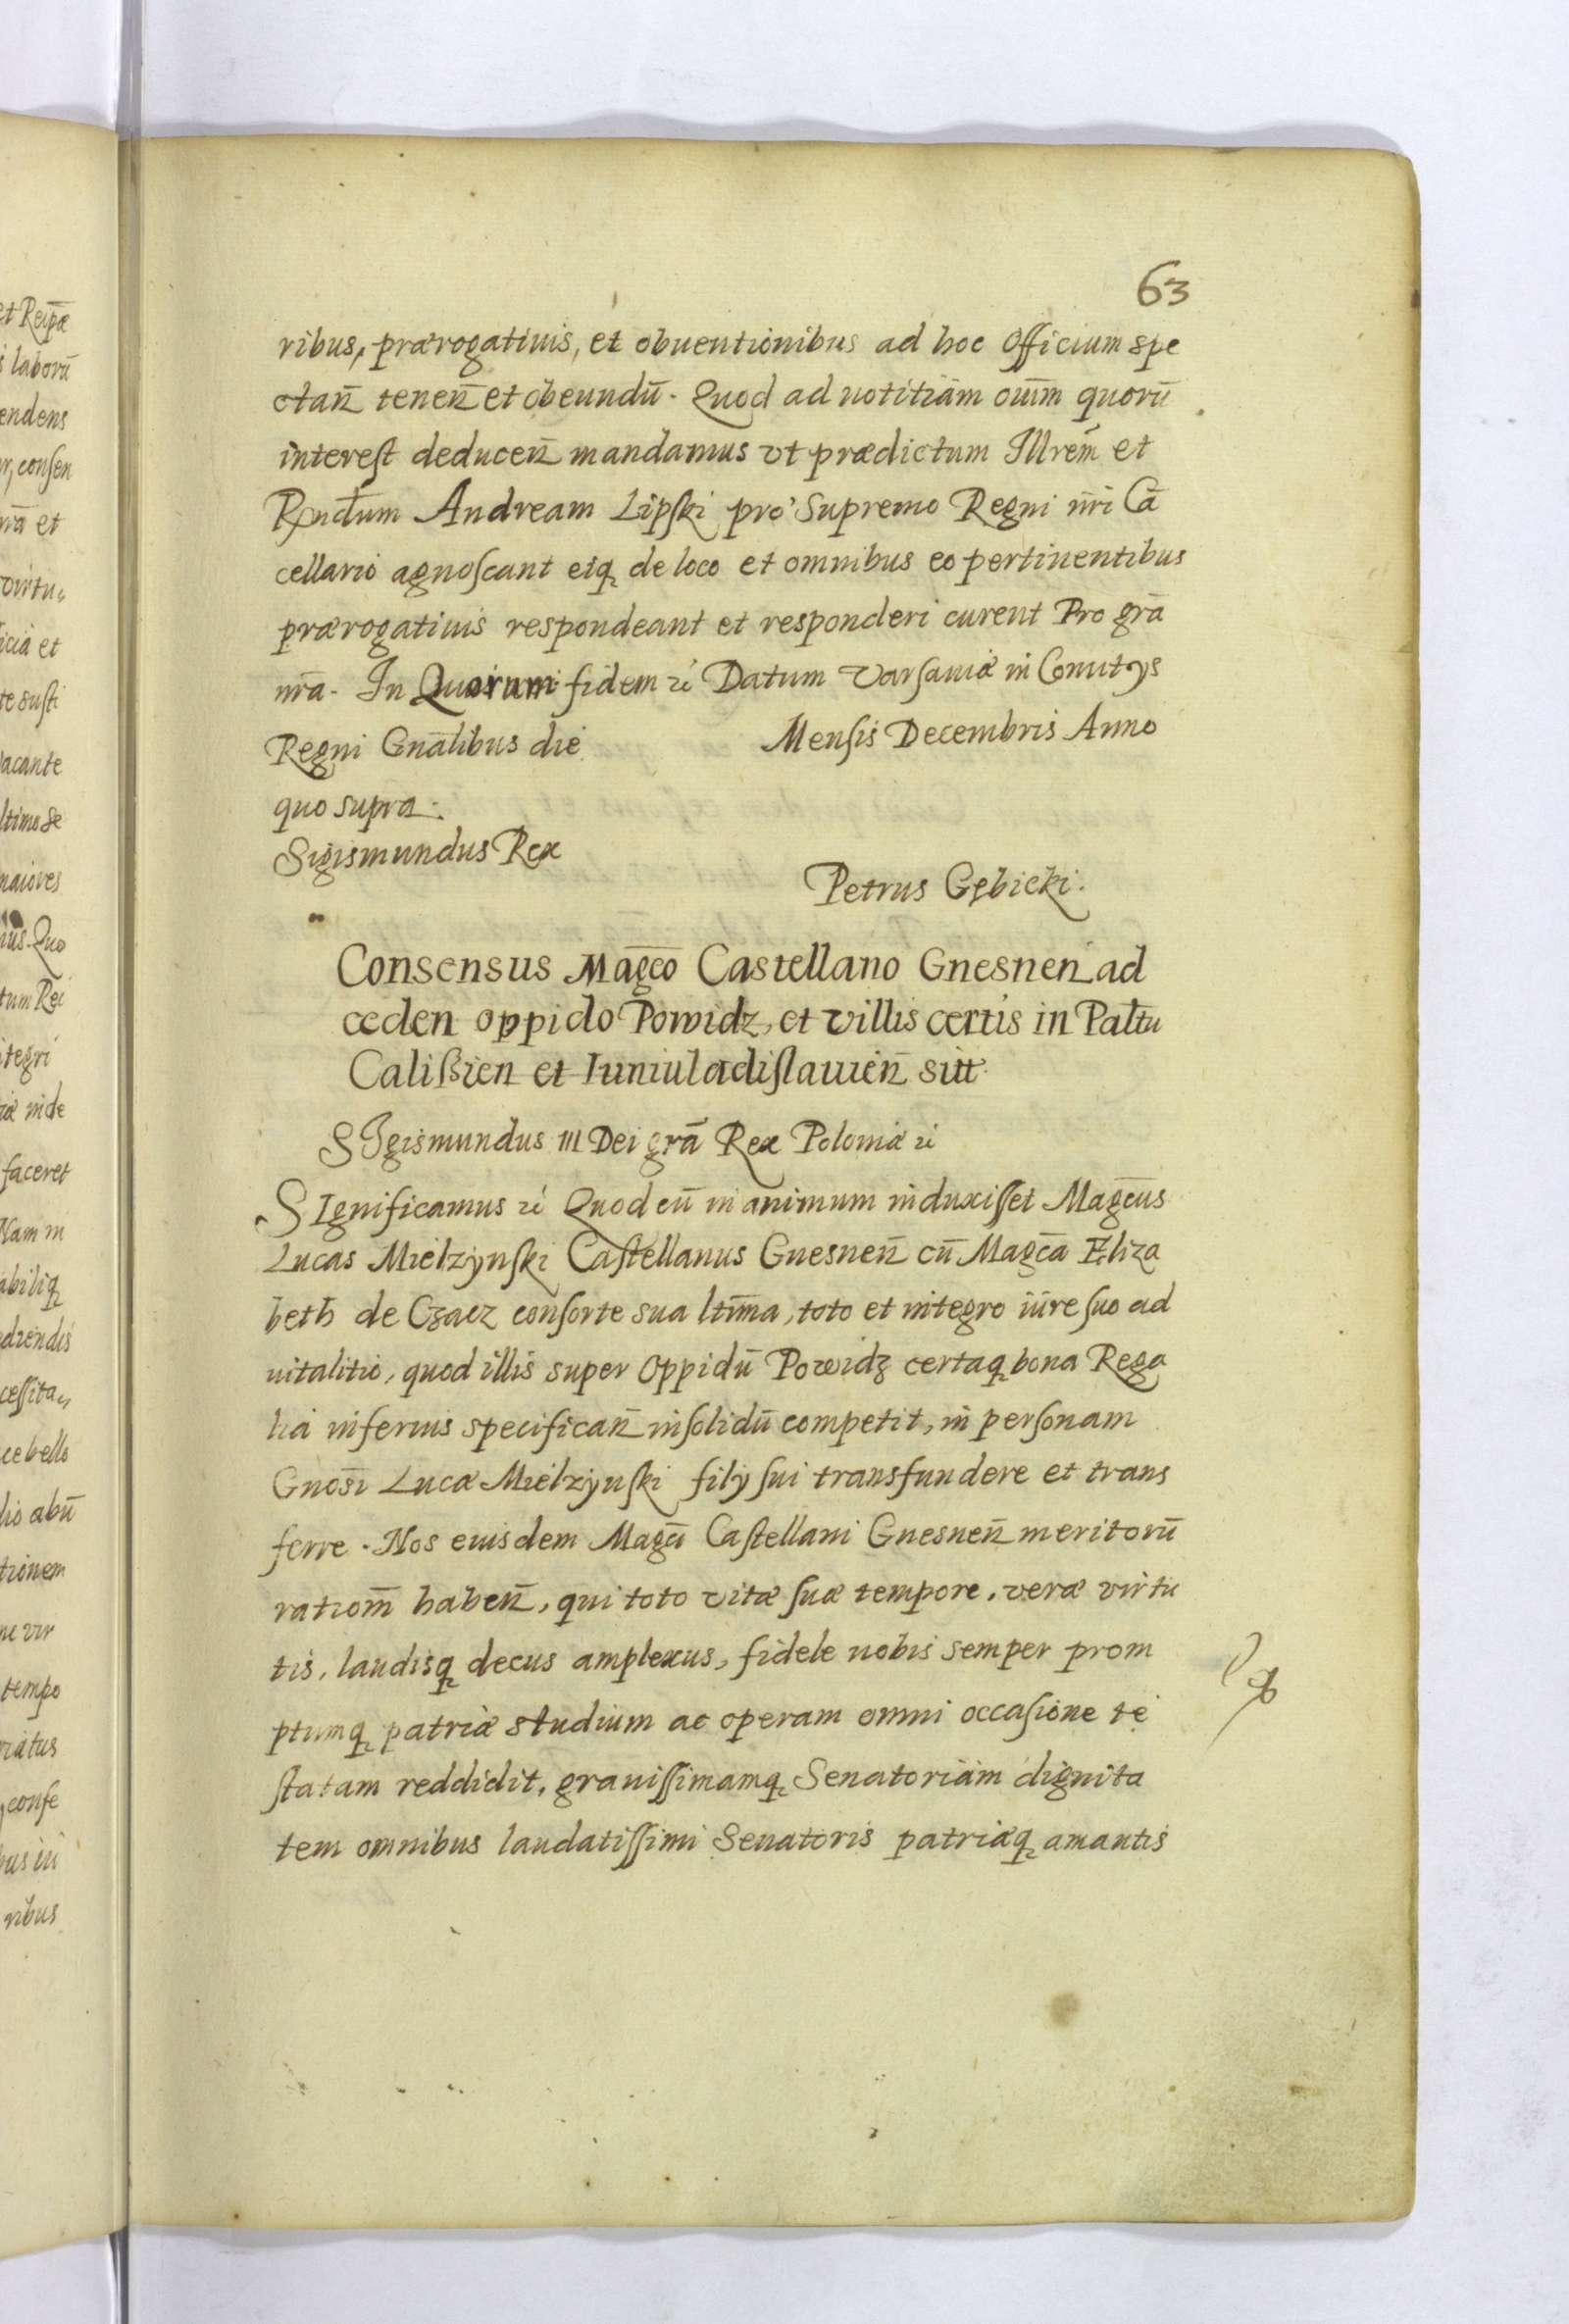 63
ribus, prærogatiuis, et obuentionibus ad hoc Officium spe
ctan̄ tenen̄ et obeundū. Quod ad notitiam om̄m quorū
interest deducen̄ mandamus vt prædictum Illrem̄ et
Rndum Andream Lipski pro Supremo Regni nr̄i Cā
cellario agnoscant eiq. de loco et omnibus eo pertinentibus
prærogatiuis respondeant et responderi curent Pro grā
nrā. In Quorum fidem ꝛc Datum Varsauiæ in Comitijs
Regni Gnalibus die Mensis Decembris Anno
quo supra.
Sigismundus Rex
Petrus Gębicki.
Consensus Magco Castellano Gnesnen ad
ceden oppido Powidz, et villis certis in Paltu
Calissien et Iuniuladislauien̄ sitt.
SIgismundus III Dei grā Rex Poloniæ ꝛc
SIgnificamus ꝛc Quod cū in animum induxisset Magcus
Lucas Mielzÿnski Castellanus Gnesnen̄ cū Magcā Eliza
beth de Czacz consorte sua ltīma, toto et integro iure suo ad
uitalitio, quod illis super Oppidū Powidz certaq. bona Rega
lia inferius specifican̄ insolidū competit, in personam
Gnosi Lucæ Mielzÿnski filÿ sui transfundere et trans
ferre. Nos eiusdem Magci Castellani Gnesnen̄ meritorū
rationm̄ haben̄, qui toto vitæ suæ tempore, veræ virtu
tis, laudisq. decus amplexus, fidele nobis semper prom
ptumq. patriæ studium ac operam omni occasione te
statam reddidit, grauissimamq. Senatoriam dignita
tem omnibus laudatissimi Senatoris patriæq. amantis